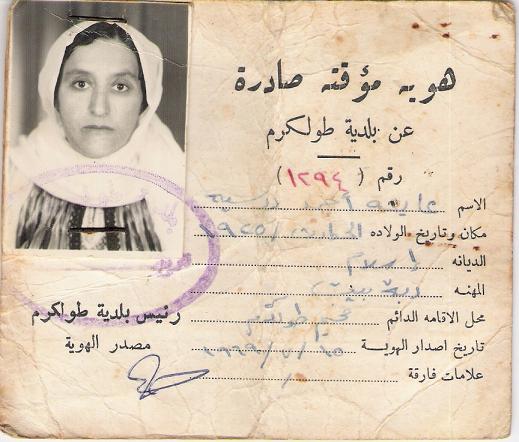 هويه مؤقته صادرة
عن بلدية طولكرم
رقم (١٢٩٤)
الاسم عايشه احمد
مكان وتاريخ الولاده ١٩٢٥
الديانه إسلام
المهنه ربة بيت
محل الاقامه الدائم مخيم طولكرم
تاريخ اصدار الهوية
علامات فارقة
رئيس بلدية طولكرم
مصدر الهوية